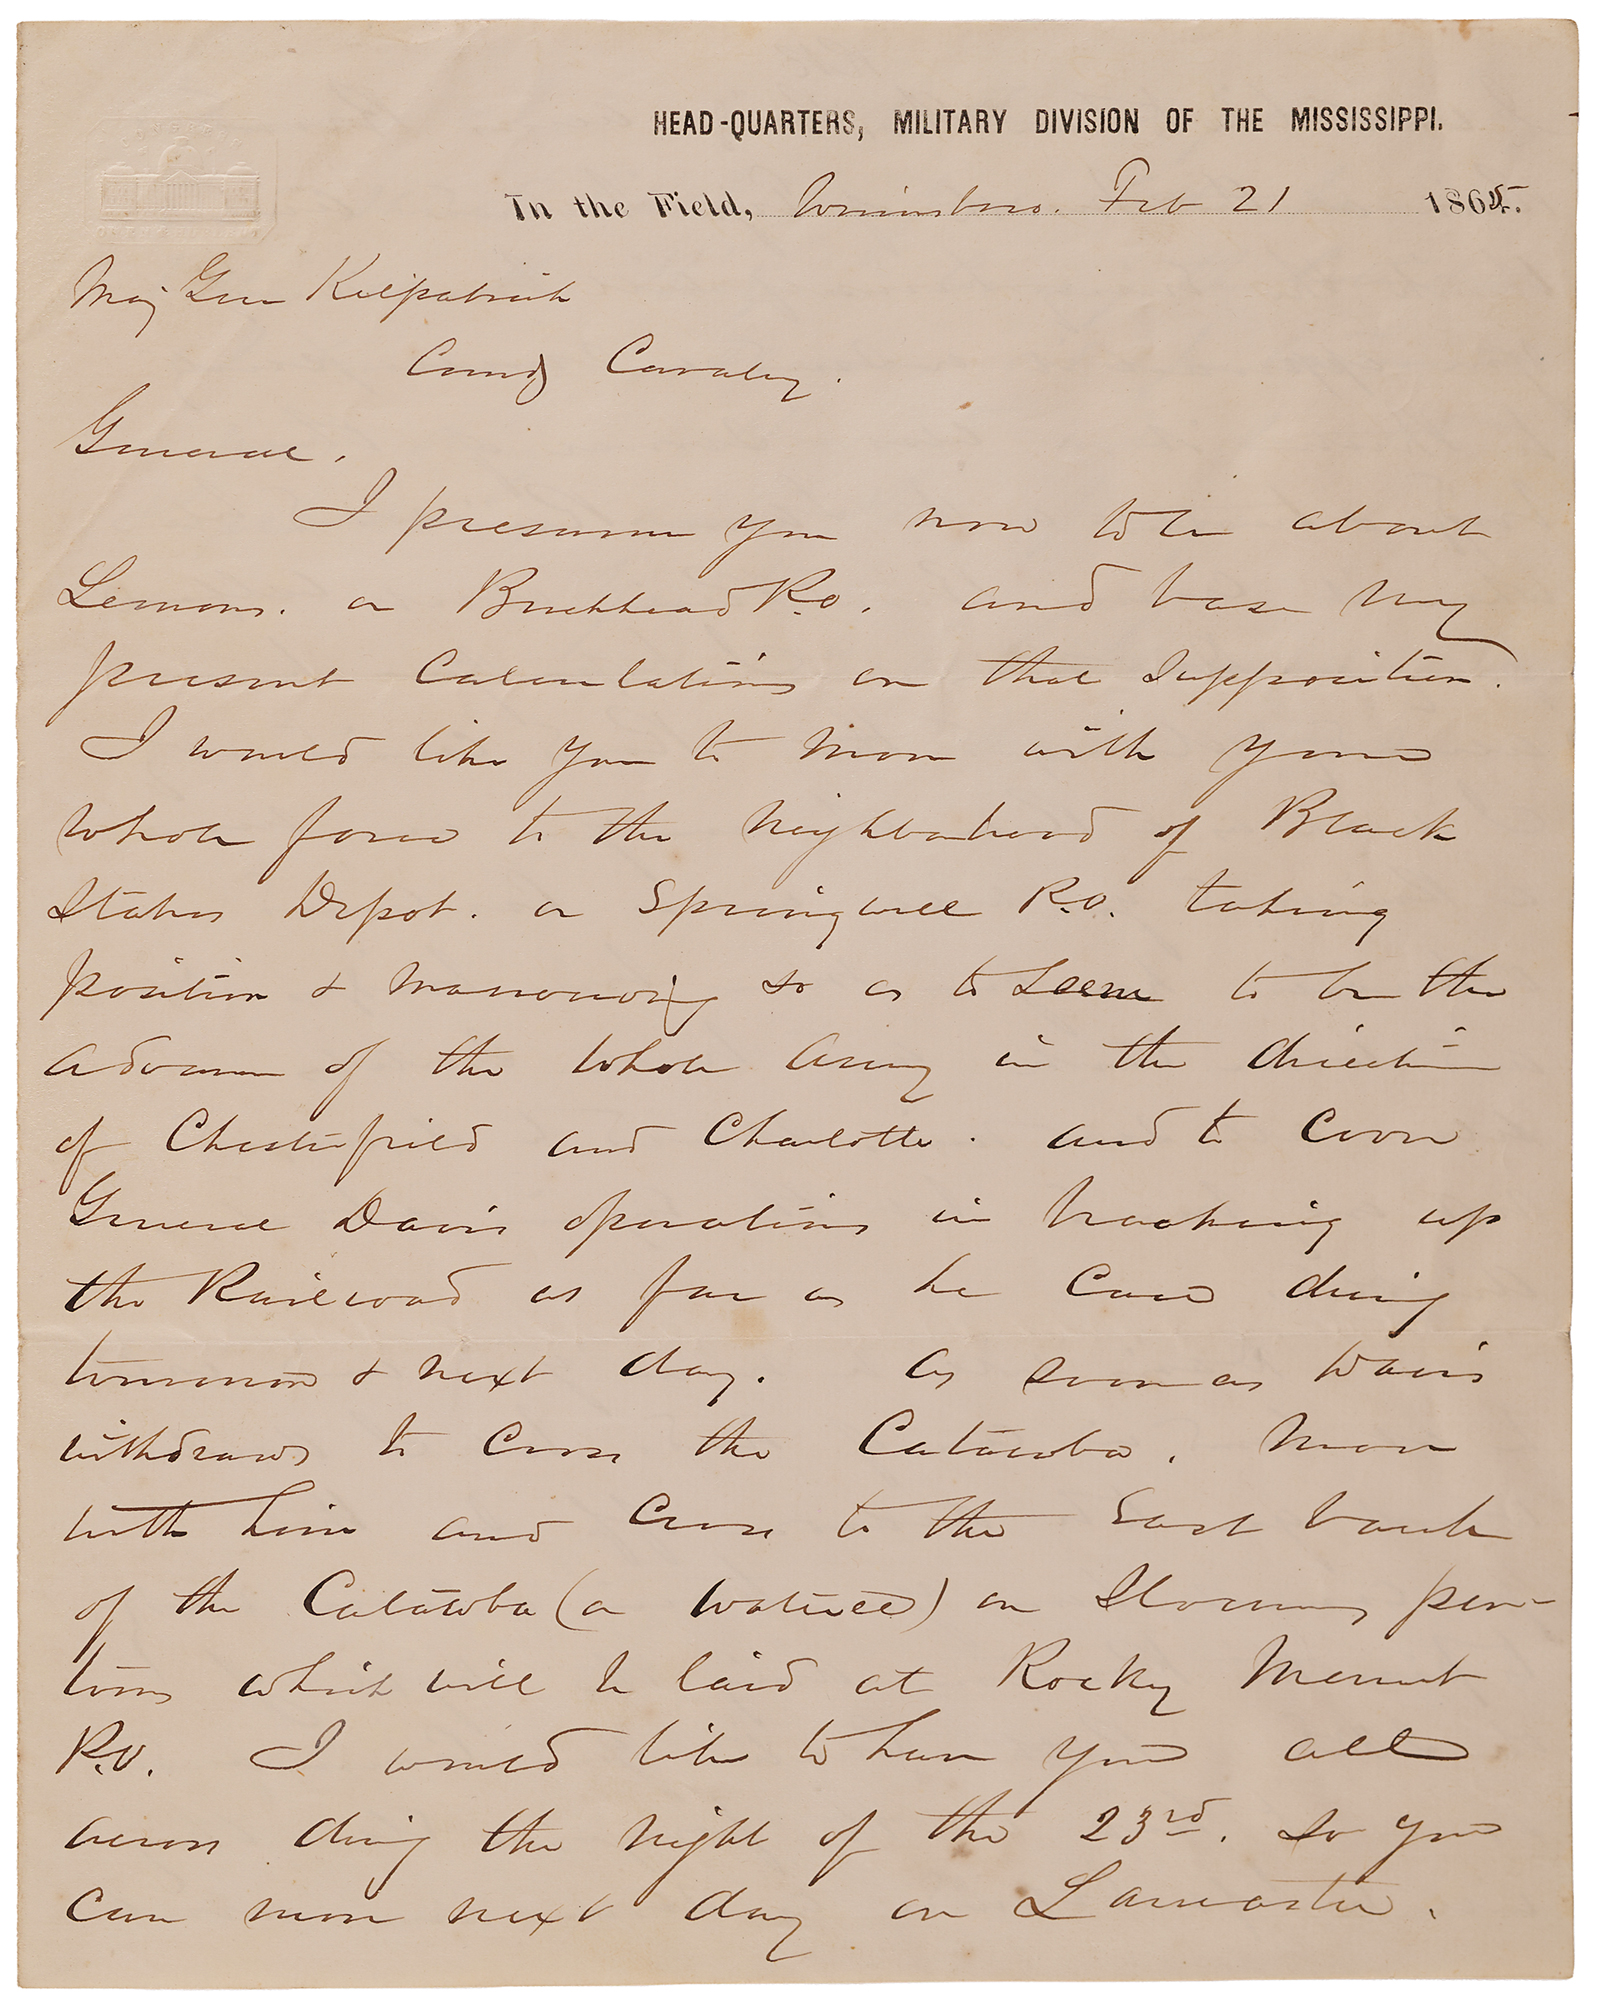 CONGRESS
HEAD-QUARTERS, MILITARY DIVISION OF THE MISSISSIPPI.
In the Field, Winnsboro. Feb 21 1865.
Maj Gen Kilpatrick
Comdg Cavalry.
General.
I presume you now to be about
Lemons. or Buckhead P.O. and base my
present Calculations on that Supposition.
I would like you to move with your
whole force to the neighborhood of Black
Stakes Depot. or Springwell P.O. taking
position & manoeuvring so as to seem to be the
advance of the whole army in the direction
of Chesterfield and Charlotte. and to cover
General Davis operations in breaking up
the Railroad as far as he can during
tomorrow & next day. As soon as Davis
withdraws to cross the Catawba, move
with him and cross to the East bank
of the Catawba (or Wateree) on Slocums pon-
toons which will be laid at Rocky Mount
P.O. I would like to have you all
across during the night of the 23rd. so you
can move next day on Lancaster.